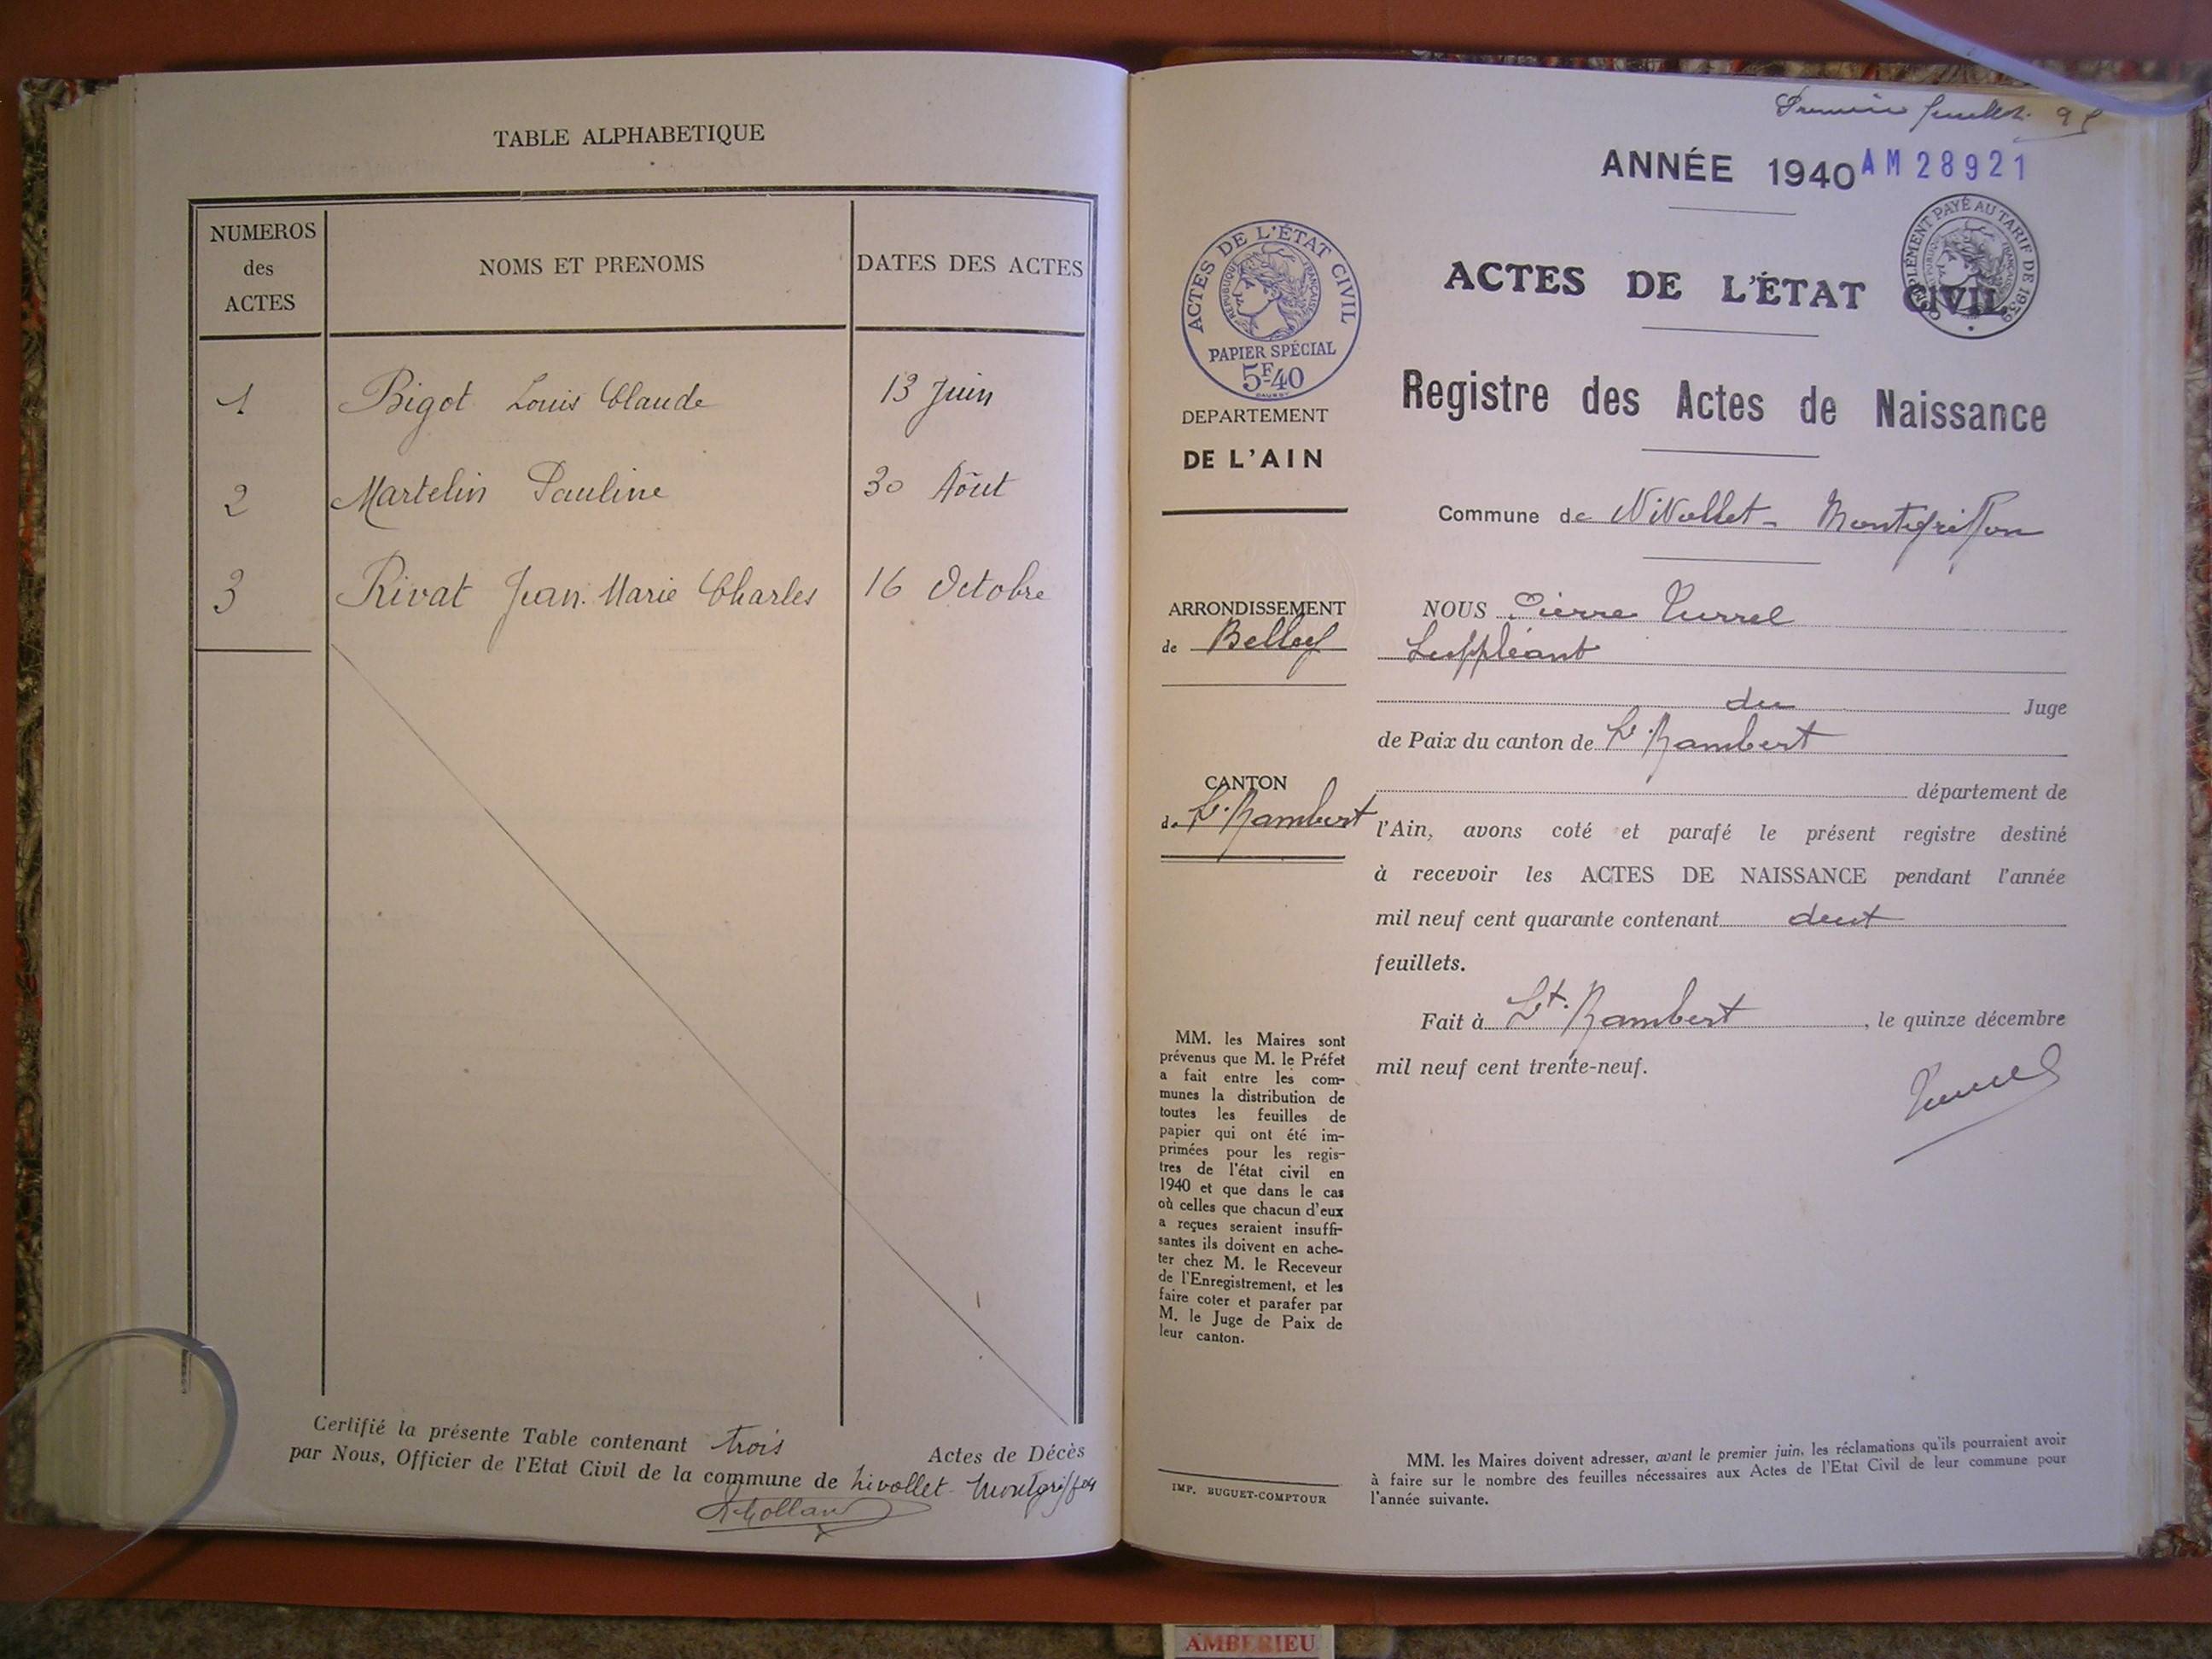 TABLE ALPHABETIQUE
NUMEROS des ACTES
NOMS ET PRENOMS
DATES DES ACTES
1 Bigot Louis Claude 13 Juin
2 Martelin Pauline 30 Aôut
3 Rivat Jean. Marie Charles 16 Octobre
Certifié la présente Table contenant trois Actes de Décès
par Nous, Officier de l'Etat Civil de la commune de Nivollet-Montgriffon
Premier feuillet.
ANNÉE 1940 AM28921
ACTES DE L'ÉTAT CIVIL
PAPIER SPÉCIAL
5F40
RÉPUBLIQUE FRANÇAISE
COMPLÉMENT PAYÉ AU TARIF DE 1939
ACTES DE L'ÉTAT CIVIL
Registre des Actes de Naissance
DEPARTEMENT
DE L'AIN
ARRONDISSEMENT
de Belley
CANTON
de St. Rambert
MM. les Maires sont
prévenus que M. le Préfet
a fait entre les com-
munes la distribution de
toutes les feuilles de
papier qui ont été im-
primées pour les regis-
tres de l'état civil en
1940 et que dans le cas
où celles que chacun d'eux
a reçues seraient insuffi-
santes ils doivent en ache-
ter chez M. le Receveur
de l'Enregistrement, et les
faire coter et parafer par
M. le Juge de Paix de
leur canton.
IMP. BUGUET-COMPTOUR
Commune de Nivollet-Montgriffon
NOUS Pierre Turrel
Suppléant
du Juge
de Paix du canton de St. Rambert
département de
l'Ain, avons coté et parafé le présent registre destiné
à recevoir les ACTES DE NAISSANCE pendant l'année
mil neuf cent quarante contenant deux
feuillets.
Fait à St. Rambert, le quinze décembre
mil neuf cent trente-neuf.
Turrel
MM. les Maires doivent adresser, avant le premier juin, les réclamations qu'ils pourraient avoir
à faire sur le nombre des feuilles nécessaires aux Actes de l'Etat Civil de leur commune pour
l'année suivante.
AMBERIEU